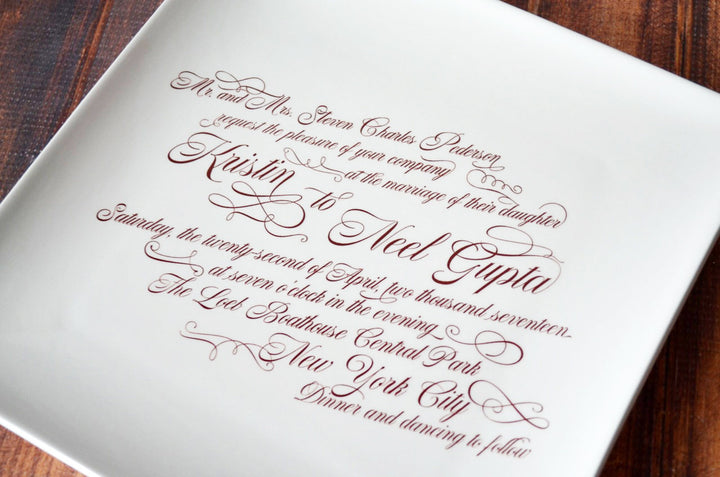 Mr. and Mrs. Steven Charles Pedersen
request the pleasure of your company
at the marriage of their daughter
Kristin to Neel Gupta
Saturday, the twenty-second of April, two thousand seventeen
at seven o'clock in the evening
The Loeb Boathouse Central Park
New York City
Dinner and dancing to follow